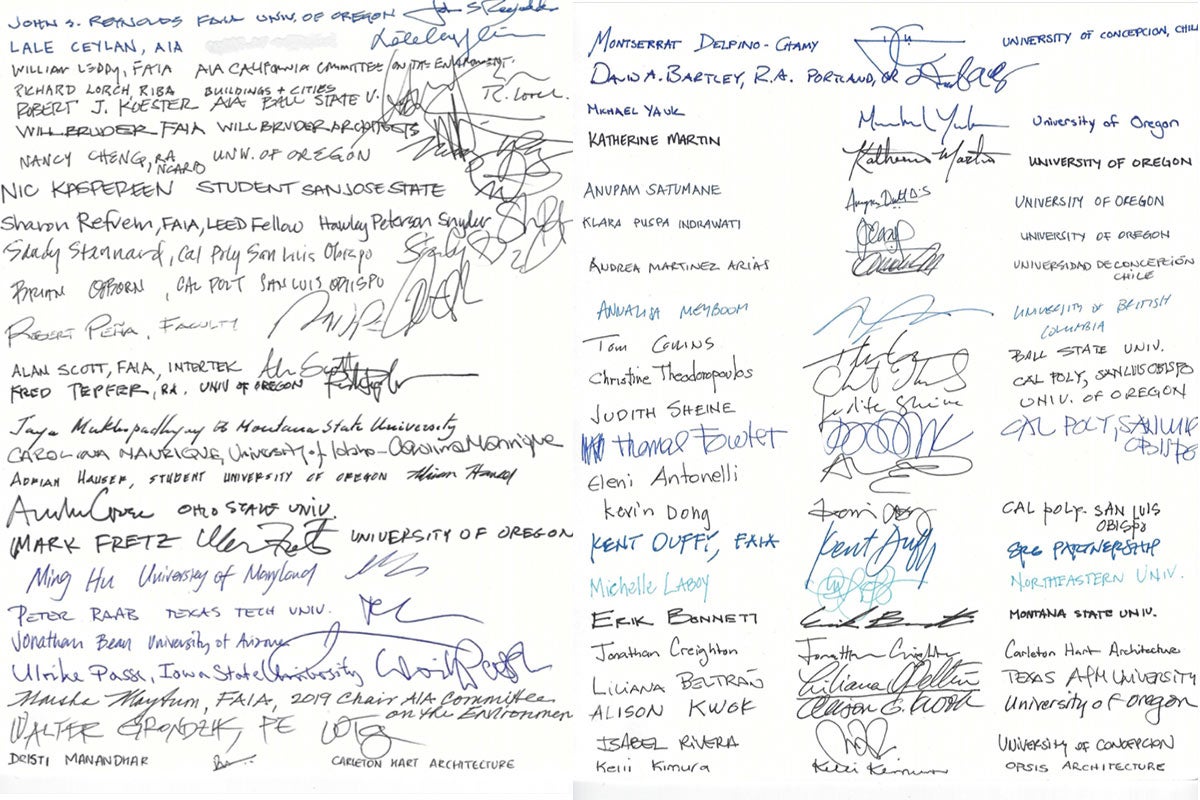 JOHN S. REYNOLDS FAIA UNIV. OF OREGON
LALE CEYLAN, AIA
WILLIAM LEDDY, FAIA AIA CALIFORNIA COMMITTEE ON THE ENVIRONMENT
RICHARD LORCH, RIBA BUILDINGS + CITIES R. Lorch
ROBERT J. KOESTER AIA BALL STATE U.
WILL BRUDER FAIA WILL BRUDER ARCHITECTS
NANCY CHENG, RA, NCARB UNIV. OF OREGON
NIC KASPEREEN STUDENT SAN JOSE STATE
Sharon Refvem, FAIA, LEED Fellow Hawley Peterson Snyder
Stacy Stennard, Cal Poly San Luis Obispo
BRIAN OSBORN, CAL POLY SAN LUIS OBISPO
ROBERT PEÑA, FACULTY
ALAN SCOTT, FAIA, INTERTEK Alan Scott
FRED TEPFER, RA. UNIV OF OREGON
Jaya Mukhopadhyay Montana State University
CAROLINA MANRIQUE, University of Idaho - Carolina Manrique
ADRIAN HAUSER, STUDENT UNIVERSITY OF OREGON
OHIO STATE UNIV.
MARK FRETZ UNIVERSITY OF OREGON
Ming Hu University of Maryland
PETER RAAB TEXAS TECH UNIV.
Jonathan Bean University of Arizona
Ulrike Passe, Iowa State University
Marsha Maytum, FAIA, 2019 Chair AIA Committee
on the Environmen
WALTER GRONDZIK, PE
DRISTI MANANDHAR CARLETON HART ARCHITECTURE
MONTSERRAT DELPINO-CHAMY UNIVERSITY OF CONCEPCION, CHIL
DAVID A. BARTLEY, R.A. PORTLAND, OR
MICHAEL YAUK University of Oregon
KATHERINE MARTIN Katherine Martin UNIVERSITY OF OREGON
ANUPAM SATUMANE UNIVERSITY OF OREGON
KLARA PUSPA INDRAWATI UNIVERSITY OF OREGON
ANDREA MARTINEZ ARIAS UNIVERSIDAD DE CONCEPCIÓN
CHILE
ANNALISA MEYBOOM UNIVERSITY OF BRITISH
COLUMBIA
Tom Collins BALL STATE UNIV.
Christine Theodoropoulos CAL POLY, SAN LUIS OBISPO
JUDITH SHEINE Judith Sheine UNIV. OF OREGON
Thomas Fowler CAL POLY, SAN LUIS
OBISPO
Eleni Antonelli
Kevin Dong CAL POLY- SAN LUIS
OBISPO
KENT DUFFY, FAIA Kent Duffy SRG PARTNERSHIP
Michelle Laboy NORTHEASTERN UNIV.
ERIK BONNETT MONTANA STATE UNIV.
Jonathan Creighton Jonathan Creighton Carleton Hart Architecture
LILIANA BELTRÁN Liliana Beltrán TEXAS A&M UNIVERSITY
ALISON KWOK Alison G. Kwok University of Oregon
ISABEL RIVERA UNIVERSITY OF CONCEPCION
Kelli Kimura Kelli Kimura OPSIS ARCHITECTURE